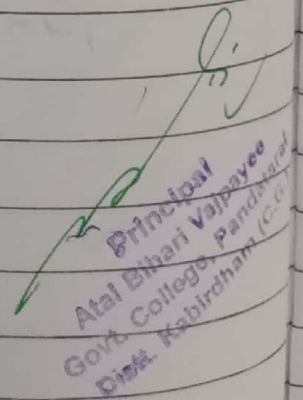 Principal
Atal Bihari Vajpayee
Govt. College, Pandatarai
Distt. Kabirdham (C.G.